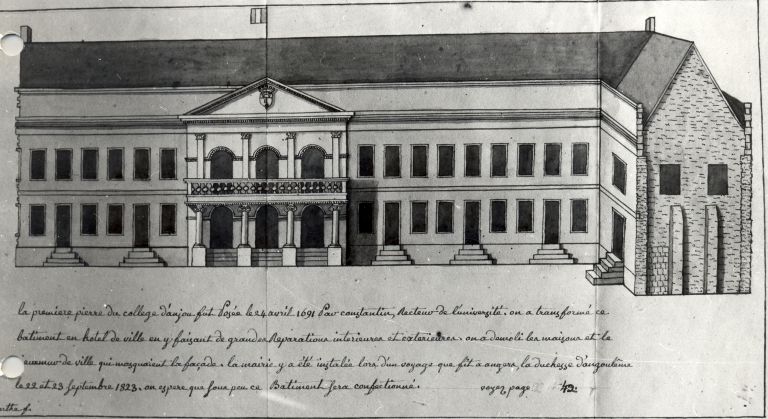 la premiere pierre du college d'anjou fut Posée le 24 avril 1691 Par constantin, Recteur de l'université. on a transformé ce
batiment en hotel de ville en y faisant de grandes Reparations interieures et exterieures. on a demoli les maisons et le
de ville qui mosquaient la façade. la mairie y a été instalée lors d'un voyage que fit a angers la duchesse d'angoulème
le 22 et 23 Septembre 1823. on espere que sous peu ce Batiment sera confectionné. voyez page 42.